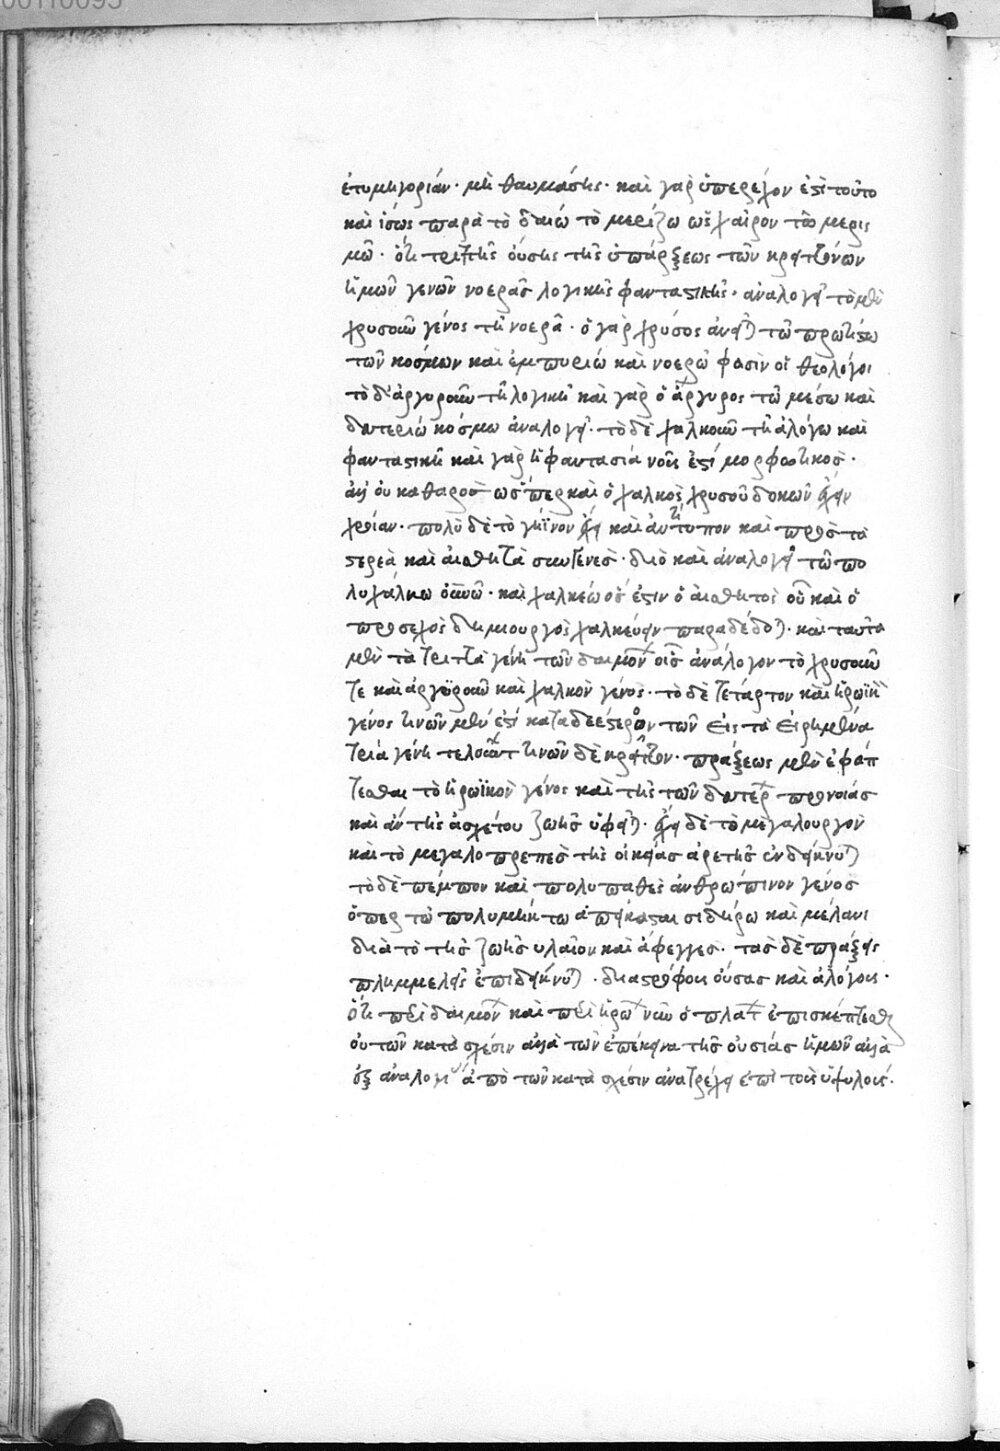 ἐτυμηγορίαν· μὴ θαυμάσῃς· καὶ γὰρ ὑπερέχον ἐστὶ τοῦτο
καὶ ἴσως παρὰ τὸ δαίω τὸ μερίζω ὡς χαῖρον τῶ μερισ
μῶ· ὅτι τριττῆς οὔσης τῆς ὑπάρξεως τῶν κρειττόνων
ἡμῶν γενῶν νοερᾶς λογικῆς φανταστικῆς· ἀναλογεῖ τὸ μὲν
χρυσοῦν γένος τῆ νοερᾶ· ὁ γὰρ χρυσὸς ἀνεῖται τῶ πρωτίστω
τῶν κόσμων καὶ ἐμπυρίω καὶ νοερῶ φασὶν οἱ θεολόγοι
τὸ δ' ἀργυροῦν τῆ λογικῆ καὶ γὰρ ὁ ἄργυρος τῶ μέσω καὶ
δευτερίω κόσμω ἀναλογεῖ· τὸ δὲ χαλκοῦν τῆ ἀλόγω καὶ
φανταστικῆ καὶ γὰρ ἡ φαντασία νοῦς ἐστί μορφωτικὸς·
ἀλλ' οὐ καθαρὸς ὥσπερ καὶ ὁ χαλκὸς χρυσοῦ δοκῶν ἔχειν
χροίαν· πολὺ δὲ τὸ γήϊνον ἔχει καὶ ἀντίτυπον καὶ πρὸς τὰ
στερεὰ καὶ αἰσθητὰ συγγενὲς· διὸ καὶ ἀναλογεῖ τῶ πο
λυχάλκω οὐρανῶ· καὶ χαλκέω ὅς ἐστιν ὁ αἰσθητὸς οὗ καὶ ὁ
προσεχὸς δημιουργὸς χαλκεύειν παραδέδοται· καὶ ταῦτα
μὲν τὰ τριττὰ γένη τῶν δαιμόνων οἷς ἀνάλογον τὸ χρυσοῦν
τε καὶ ἀργυροῦν καὶ χαλκοῦν γένος· τὸ δὲ τέταρτον καὶ ἡρωϊκὸν
γένος τινῶν μὲν ἐστί καταδεέστερον τῶν εἰς τὰ εἰρημένα
τρία γένη τελούντων τινῶν δὲ κρεῖττον· πράξεως μὲν ἐφάπ
τεσθαι τὸ ἡρωϊκὸν γένος καὶ τῆς τῶν δευτέρων προνοίας
καὶ ἀν τῆς ἀσχέτου ζωῆς ὑφεῖται· ἔχει δὲ τὸ μεγαλουργὸν
καὶ τὸ μεγαλοπρεπὲς τῆς οἰκείας ἀρετῆς ἐνδείκνυται
τὸ δὲ πέμπτον καὶ πολυπαθὲς ἀνθρώπινον γένος
ὅπερ τῶ πολυμήκτω ἀπείκασται σιδήρω καὶ μέλανι
διὰ τὸ τῆς ζωῆς ὑλαῖον καὶ ἀφεγγὲς· τὰς δὲ πράξεις
πλημμελεῖς ἐπιδείκνυται· διαστρόφους οὔσας καὶ ἀλόγους·
ὅτι περὶ δαιμόνων καὶ περὶ ἡρώων νῦν ὁ πλάτων ἐπισκέπτεσθαι
οὐ τῶν κατὰ σχέσιν ἀλλὰ τῶν ἐπέκεινα τῆς οὐσίας ἡμῶν ἀλλὰ
ἐξ ἀναλογίας ἀπὸ τῶν κατὰ σχέσιν ἀνατρέχει ἐπὶ τοὺς